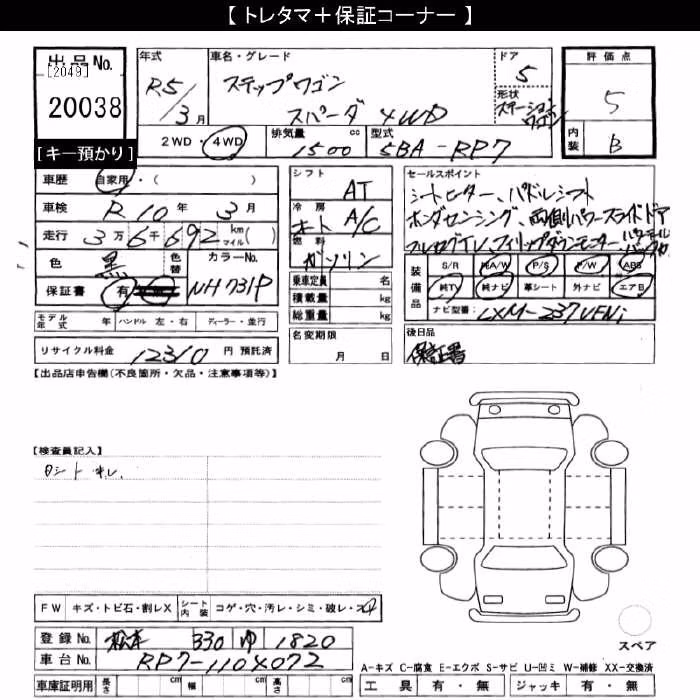 【 トレタマ＋保証コーナー 】
出品No.
[2049]
20038
[キー預かり]
年式
R5/3月
車名・グレード
ステップワゴン
スパーダ 4WD
ドア
5
形状
ステーションワゴン
評価点
5
内装
B
2WD・4WD
排気量
1500 cc
型式
5BA-RP7
車歴 自家用・( )
車検 R 10年 3月
走行 3万6千692 km マイル( )
色 黒 色替 カラーNo.
保証書 有 NH731P
シフト
AT
冷房
オート A/C
燃料
ガソリン
乗車定員 名
積載量 kg
総重量 kg
セールスポイント
シートヒーター、パドルシフト
ホンダセンシング、両側パワースライドドア
装備品
S/R A/W P/S P/W ABS
純TV 純ナビ 革シート 外ナビ エアB
ナビ型番: LXM-237VFNi
モデル年式 年 ハンドル 左・右 ディーラー・並行
名変期限
月 日
後日品
保証書
リサイクル料金 12310 円 預託済
【出品店申告欄(不良箇所・欠品・注意事項等)】
【検査員記入】
FW キズ・トビ石・割レX シート内装 コゲ・穴・汚レ・シミ・破レ・スレ
登録No. 松本 330 ゆ 1820
車台No. RP7-1104072
車庫証明用 長さ cm 幅 cm 高さ cm
スペア
A-キズ C-腐食 E-エクボ S-サビ U-凹ミ W-補修 XX-交換済
工具 有・無 ジャッキ 有・無